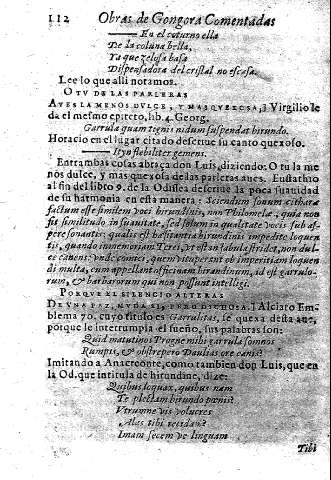 112 Obras de Gongora Comentadas
En el coturno ella
De la coluna bella,
Ya que zelosa basa
Dispensadora del cristal no escasa.
Lee lo que alli notamos.
O TV DE LAS PARLERAS
AVES LA MENOS DVLCE, Y MAS QVEXOSA,] Virgilio le
da el mesmo epiteto, lib. 4. Georg.
Garrula quam tignis nidum suspendat hirundo.
Horacio en el lugar citado descriue su canto quexoso.
Ityn flebiliter gemens.
Entrambas cosas abraça don Luis, diziendo: O tu la me
nos dulce, y mas quexosa de las parleras aues. Eustathio
al fin del libro 9. de la Odissea descriue la poca suauidad
de su harmonia en esta manera: Sciendum sonum citharæ
factum esse similem voci hirundinis, non Philomelæ, quia non
fit similitudo in suauitate, sed solum in qualitate vocis sub as-
pere sonantis: qualis est hæsitantis hirundinis impedite loquen
tis, quando immemoriam Terei, vt est in fabula stridet, non dul-
ce canens: vnde comici, quem vituperant ob imperitiam loquen
di multa, eum appellant officinam hirundinum, id est garrulo-
rum, & barbarorum qui non possunt intelligi.
PORQVE EL SILENCIO ALTERAS
DE VNA PAZ MVDA SI, PERO DICHOSA.] Alciato Em-
blema 70. cuyo titulo es Garrulitas, se quexa desta aue,
porque le interrumpia el sueño, sus palabras son:
Quid matutinos Progne mihi garrula somnos
Rumpis, & obstrepero Daulias ore canis?
Imitando a Anacreonte, como tambien don Luis, que en
la Od. que intitula de hirundine, dize:
Quibus loquax, quibus nam
Te plectam hirundo pœnis?
Vtrumne vis volucres
Alas tibi recidam?
Imam secem ve linguam
Tibi